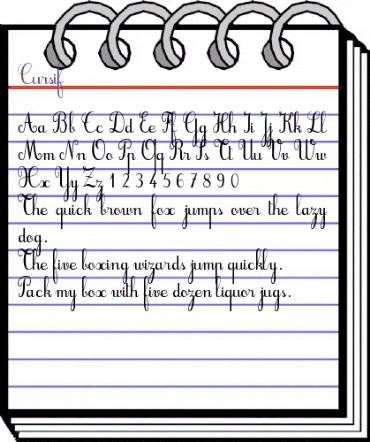 Cursif
Aa Bb Cc Dd Ee Ff Gg Hh Ii Jj Kk Ll
Mm Nn Oo Pp Qq Rr Ss Tt Uu Vv Ww
Xx Yy Zz 1 2 3 4 5 6 7 8 9 0
The quick brown fox jumps over the lazy
dog.
The five boxing wizards jump quickly.
Pack my box with five dozen liquor jugs.